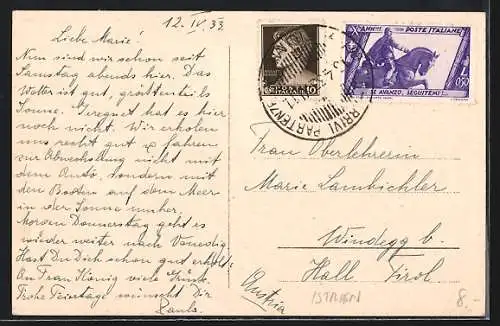 12. IV. 33.
Liebe Marie!
Nun sind wir schon seit
Samstag abends hier. Das
Wetter ist gut, größtenteils
Sonne. Geregnet hat es hier
noch nicht. Wir erholen
uns recht gut u fahren
zur Abwechslung nicht mit
dem Auto, sondern mit
den Booten auf dem Meer
in der Sonne umher.
Morgen Donnerstag geht es
wieder weiter nach Venedig.
Hast Du Dich schon gut erholt?
An Frau König viele Grüße.
Frohe Feiertage wünscht Dir
X ANNUALE POSTE ITALIANE
SE AVANZO, SEGUITEMI!
0,50
10
ARRIVI PARTENZE
Frau Oberlehrerin
Marie Lambichler
Windegg b.
Hall Tirol
Austria
ISTRIEN
8,-